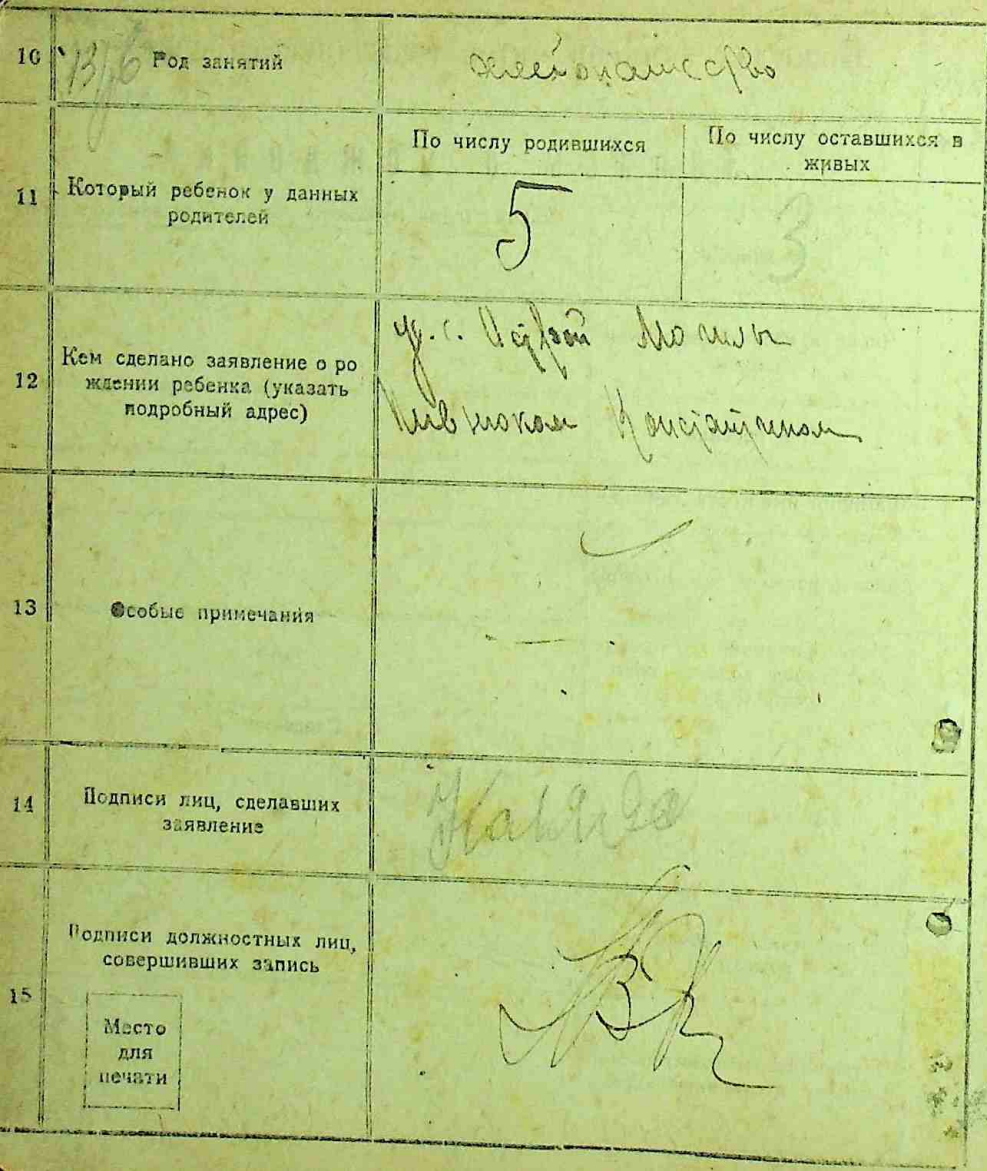 10 Род занятий хлебопашество
11 Который ребенок у данных
родителей
По числу родившихся
5
По числу оставшихся в
живых
3
12 Кем сделано заявление о ро
ждении ребенка (указать
подробный адрес)
Могилы
Константином
13 Особые примечания
—
14 Подписи лиц, сделавших
заявление
15 Подписи должностных лиц,
совершивших запись
Место
для
печати